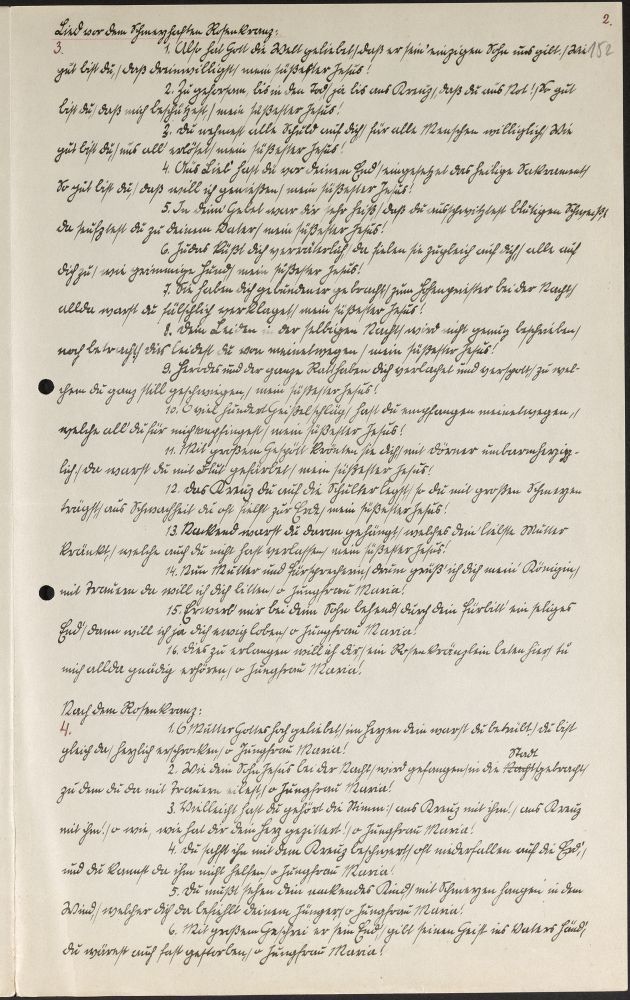 2.
Lied vor dem Schmerzhaften Rosenkranz:
152
3. 1. Also hat Gott die Welt geliebet, / daß er sein' einzigen Sohn uns gibt. / Wie
gut bist du, / daß dreinwilligst / mein süßester Jesus!
2. Zu gehorsam, bis in den Tod / ja bis ans Kreuz, / daß du aus Not! / So gut
bist du, / daß mich beschützest, / mein süßester Jesus!
3. Du nehmest alle Schuld auf dich / für alle Menschen williglich / Wie
gut bist du, / uns all' erlösest / mein süßester Jesus!
4. Aus Lieb' hast du vor deinem End' / eingesetzet das heilige Sakrament /
So gut bist du, / daß will ich genießen, / mein süßester Jesus!
5. In deim' Gebet war dir sehr heiß, / daß du ausschwitztest blutigen Schweiß /
da seufztest du zu deinem Vater, / mein süßester Jesus!
6. Judas küßt dich verräterlich, / da fielen sie zugleich auf dich, / alle auf
dich zu, / wie grimmige Hund, / mein süßester Jesus!
7. Sie haben dich gebunden gebracht, / zum Hohenpriester bei der Nacht, /
allda warst du fälschlich verklaget, / mein süßester Jesus!
8. Dein Leiden in der selbigen Nacht, / wird nicht genung beschrieben, /
noch betracht, / dies leidest du von meinetwegen, / mein süßester Jesus!
9. Herodes und der ganze Rat / haben dich verlachet und verspott, / zu wel-
chem du ganz still geschwiegen, / mein süßester Jesus!
10. O viel hundert Geißelschläg, / hast du empfangen meinetwegen, /
welche all' du für mich empfingest, / mein süßester Jesus!
11. Mit großem Gespött krönten sie dich / mit Dörner unbarmherzig-
lich, / da warst du mit Blut gefärbet, / mein süßester Jesus!
12. Das Kreuz du auf die Schulter legst, / so du mit großen Schmerzen
trägst, / aus Schwachheit du oft fielst zur Erde, / mein süßester Jesus!
13. Nackend warst du daran gehängt, / welches dein' liebste Mutter
kränkt, / welche auch du nicht hast verlassen, / mein süßester Jesus!
14. Nun Mutter und Fürsprecherin, / drum grüß' ich dich mein' Königin, /
mit Trauern da will ich dich bitten, / o Jungfrau Maria!
15. Erwerb' mir bei deim Sohn behend, / durch dein' Fürbitt' ein seliges
End, / dann will ich ja dich ewig loben, / o Jungfrau Maria!
16. Dies zu erlangen will ich dir, / ein Rosenkränzlein beten hier, / tu
mich allda gnädig erhören, / o Jungfrau Maria!
Nach dem Rosenkranz:
4. 1. O Mutter Gottes hoch geliebet, / im Herzen dein warst du betrübt, / du bist
gleich da, / herzlich erschrocken, / o Jungfrau Maria!
2. Wie dein Sohn Jesus bei der Nacht, / wird gefangen, in die Stadt gebracht, /
zu dem du da mit Trauern eilest, / o Jungfrau Maria!
3. Vielleicht hast du gehört die Stimm: / ans Kreuz mit ihm!, / ans Kreuz
mit ihm! / o wie, wie hat dir dein Herz gezittert! / o Jungfrau Maria!
4. Du sahst ihn mit dem Kreuz beschwert, / oft niederfallen auf die Erd', /
und du kannst da ihm nicht helfen, / o Jungfrau Maria!
5. Du mußt sehen dein nackendes Kind, / mit Schmerzen hangen in dem
Wind, / welcher dich da befiehlt deinem Jünger, / o Jungfrau Maria!
6. Mit großem Geschrei er sein End, / gibt seinen Geist ins Vaters Händ', /
du wärest auch fast gestorben, / o Jungfrau Maria!